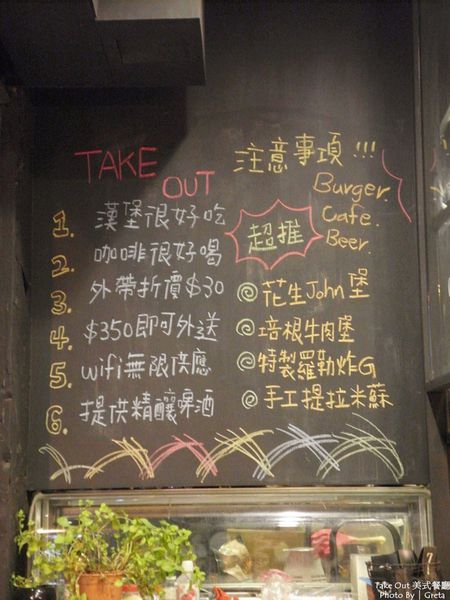 TAKE OUT
注意事項!!!
Burger.
Cafe.
Beer.
1. 漢堡很好吃
2. 咖啡很好喝
3. 外帶折價$30
4. $350即可外送
5. wifi無限供應
6. 提供精釀啤酒
超推
花生John堡
培根牛肉堡
特製羅勒炸G
手工提拉米蘇
Take Out 美式餐廳
Photo By | Greta